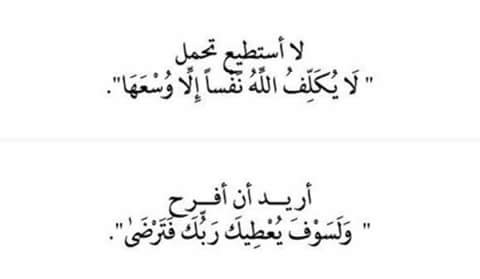 لا أستطيع تحمل
" لَا يُكَلِّفُ اللَّهُ نَفْساً إِلَّا وُسْعَهَا".
أريـد أن أفـرح
" وَلَسَوْفَ يُعْطِيكَ رَبُّكَ فَتَرْضَىٰ".